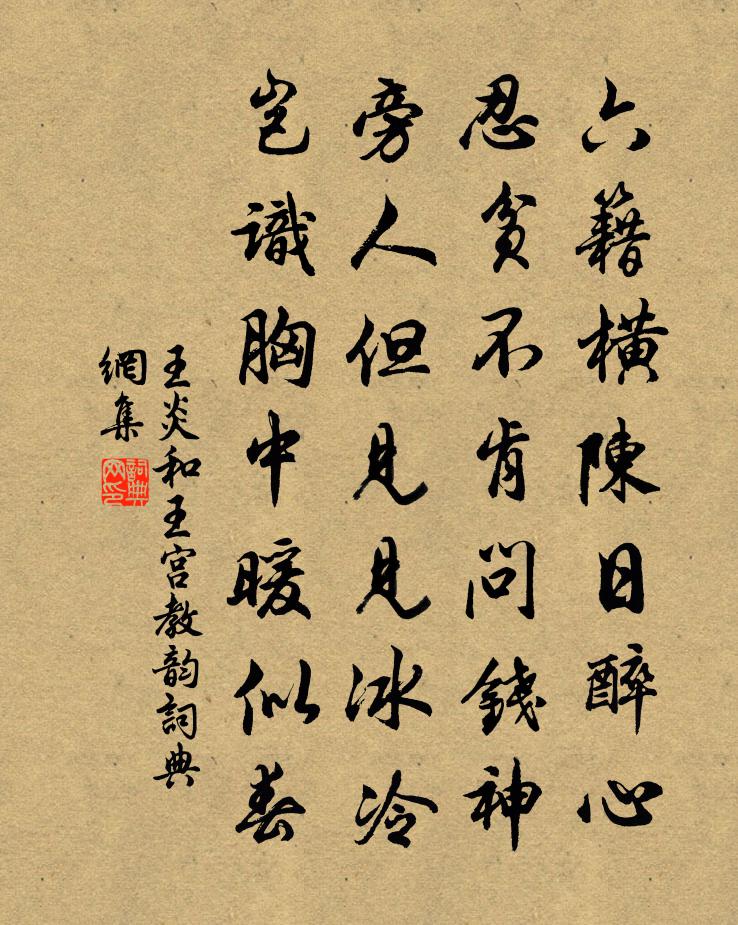 六籍橫陳日醉心
忍貧不肯問錢神
旁人但見見冰冷
豈識胸中暖似春
王炎和王宮教韵詞典
網集
詞典
网印